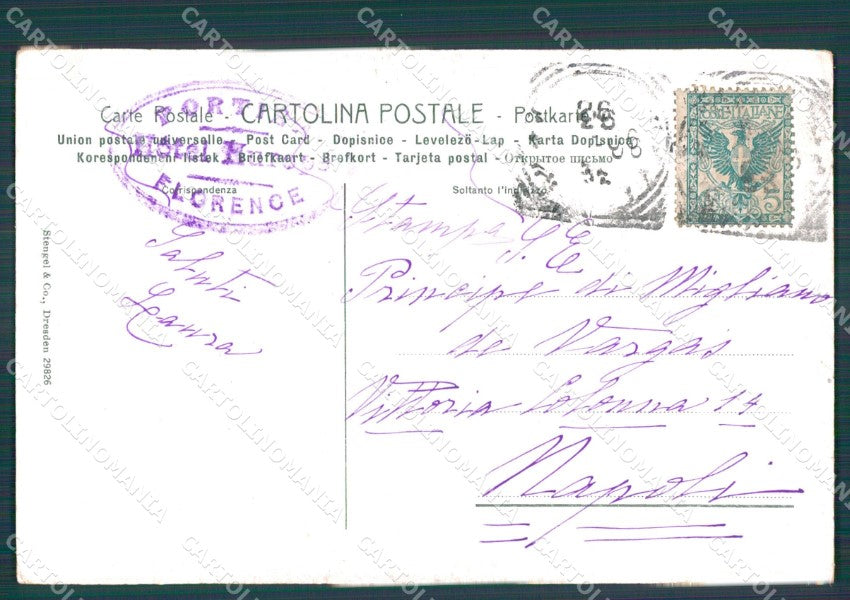 Carte Postale - CARTOLINA POSTALE - Postkarte
Union postale universelle - Post Card - Dopisnice - Levelező-Lap - Karta Dopisnica
Korespondenční listek - Briefkaart - Brefkort - Tarjeta postal - Открытое письмо
Corrispondenza
Soltanto l'indirizzo
PORTA
Hôtel
FLORENCE
POSTE ITALIANE
5
Stampa
S. E.
Principe di Migliano
de Vargas
Vittoria Colonna 14
Napoli
Saluti
Laura
Stengel & Co., Dresden 29826
CARTOLINOMANIA